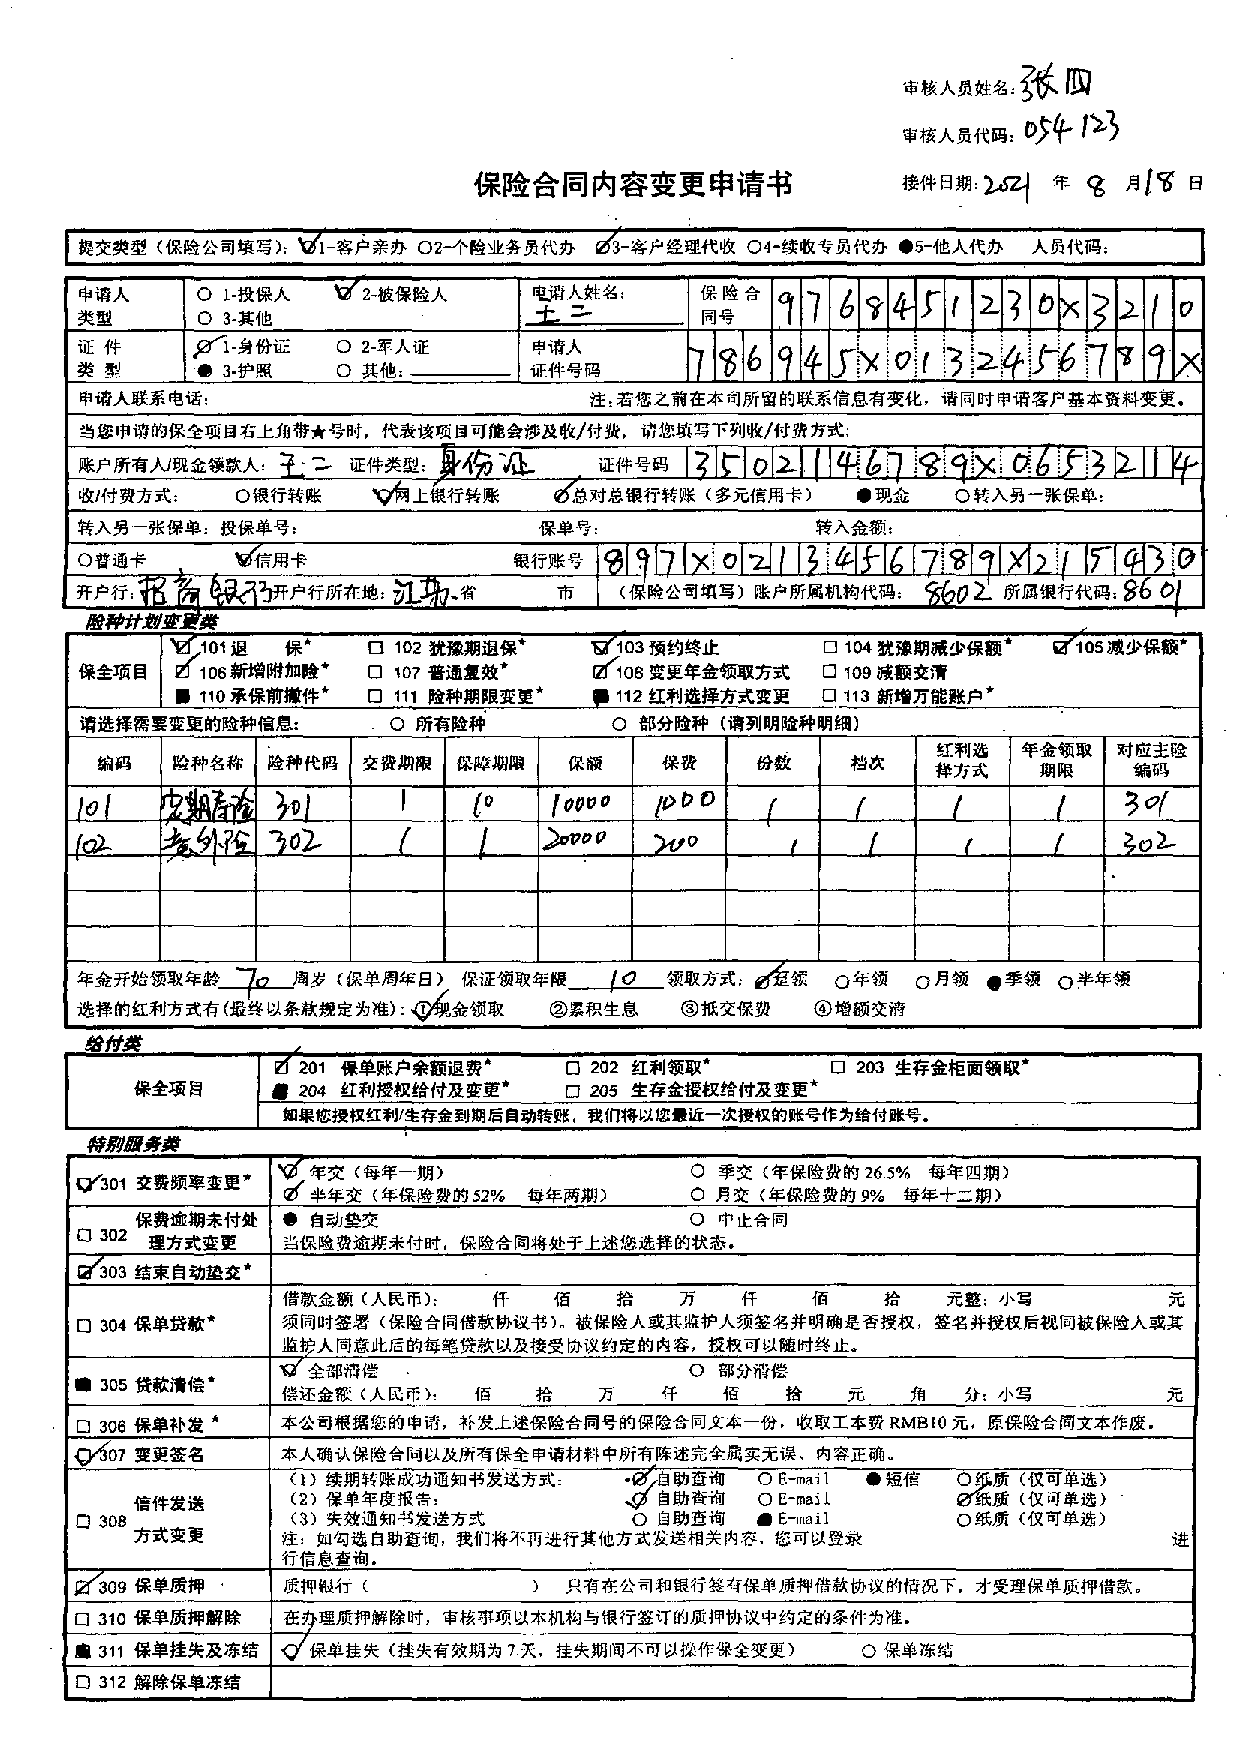 审核人员姓名:张四
审核人员代码:054123
保险合同内容变更申请书
接件日期:2021 年 8 月18 日
提交类型(保险公司填写): ☑1-客户亲办 ○2-个险业务员代办 ☑3-客户经理代收 ○4-续收专员代办 ●5-他人代办 人员代码:
申请人类型 ○ 1-投保人 ☑ 2-被保险人 ○ 3-其他 申请人姓名: 王二 保险合同号 9768451230X3210
证件类型 ☑ 1-身份证 ○ 2-军人证 ● 3-护照 ○ 其他: 申请人证件号码 786945X0132456789X
申请人联系电话: 注:若您之前在本司所留的联系信息有变化,请同时申请客户基本资料变更。
当您申请的保全项目右上角带★号时,代表该项目可能会涉及收/付费,请您填写下列收/付费方式:
账户所有人/现金领款人: 王二 证件类型: 身份证 证件号码 35021146789X0653214
收/付费方式: ○银行转账 ☑网上银行转账 ☑总对总银行转账(多元信用卡) ●现金 ○转入另一张保单:
转入另一张保单:投保单号: 保单号: 转入金额:
○普通卡 ☑信用卡 银行账号 897X0213456789X215430
开户行: 招商银行 开户行所在地: 江苏 省 市 (保险公司填写)账户所属机构代码: 8602 所属银行代码: 8601
险种计划变更类
保全项目 ☑101退 保* □ 102 犹豫期退保* ☑103 预约终止 □ 104 犹豫期减少保额* ☑105减少保额*
☑ 106 新增附加险* □ 107 普通复效* ☑ 108 变更年金领取方式 □ 109 减额交清
■ 110 承保前撤件* □ 111 险种期限变更* ■ 112 红利选择方式变更 □ 113 新增万能账户*
请选择需要变更的险种信息: ○ 所有险种 ○ 部分险种(请列明险种明细)
编码 险种名称 险种代码 交费期限 保障期限 保额 保费 份数 档次 红利选择方式 年金领取期限 对应主险编码
101 定期寿险 301 1 10 10000 1000 1 1 1 1 301
102 意外险 302 1 1 20000 200 1 1 1 1 302
年金开始领取年龄 70 周岁(保单周年日) 保证领取年限 10 领取方式: ☑趸领 ○年领 ○月领 ●季领 ○半年领
选择的红利方式有(最终以条款规定为准): ①现金领取 ②累积生息 ③抵交保费 ④增额交清
给付类
保全项目 ☑ 201 保单账户余额退费* □ 202 红利领取* □ 203 生存金柜面领取*
■ 204 红利授权给付及变更* □ 205 生存金授权给付及变更*
如果您授权红利/生存金到期后自动转账,我们将以您最近一次授权的账号作为给付账号。
特别服务类
☑301 交费频率变更* ☑ 年交(每年一期) ○ 季交(年保险费的26.5% 每年四期)
☑ 半年交(年保险费的52% 每年两期) ○ 月交(年保险费的9% 每年十二期)
□ 302 保费逾期未付处理方式变更 ● 自动垫交 ○ 中止合同
当保险费逾期未付时,保险合同将处于上述您选择的状态。
☑303 结束自动垫交*
□ 304 保单贷款* 借款金额(人民币): 仟 佰 拾 万 仟 佰 拾 元整:小写 元
须同时签署(保险合同借款协议书)。被保险人或其监护人须签名并明确是否授权,签名并授权后视同被保险人或其
监护人同意此后的每笔贷款以及接受协议约定的内容,授权可以随时终止。
■ 305 贷款清偿* ☑ 全部清偿 ○ 部分清偿
偿还金额(人民币): 佰 拾 万 仟 佰 拾 元 角 分:小写 元
□ 306 保单补发* 本公司根据您的申请,补发上述保险合同号的保险合同文本一份,收取工本费RMB10元,原保险合同文本作废。
☑307 变更签名 本人确认保险合同以及所有保全申请材料中所有陈述完全属实无误、内容正确。
□ 308 信件发送方式变更 (1)续期转账成功通知书发送方式: ☑自助查询 ○E-mail ●短信 ○纸质(仅可单选)
(2)保单年度报告: ☑自助查询 ○E-mail ☑纸质(仅可单选)
(3)失效通知书发送方式 ○ 自助查询 ●E-mail ○纸质(仅可单选)
注:如勾选自助查询,我们将不再进行其他方式发送相关内容,您可以登录 进
行信息查询。
☑309 保单质押 质押银行( ) 只有在公司和银行签有保单质押借款协议的情况下,才受理保单质押借款。
□ 310 保单质押解除 在办理质押解除时,审核事项以本机构与银行签订的质押协议中约定的条件为准。
■ 311 保单挂失及冻结 ☑保单挂失(挂失有效期为7天,挂失期间不可以操作保全变更) ○ 保单冻结
□ 312 解除保单冻结